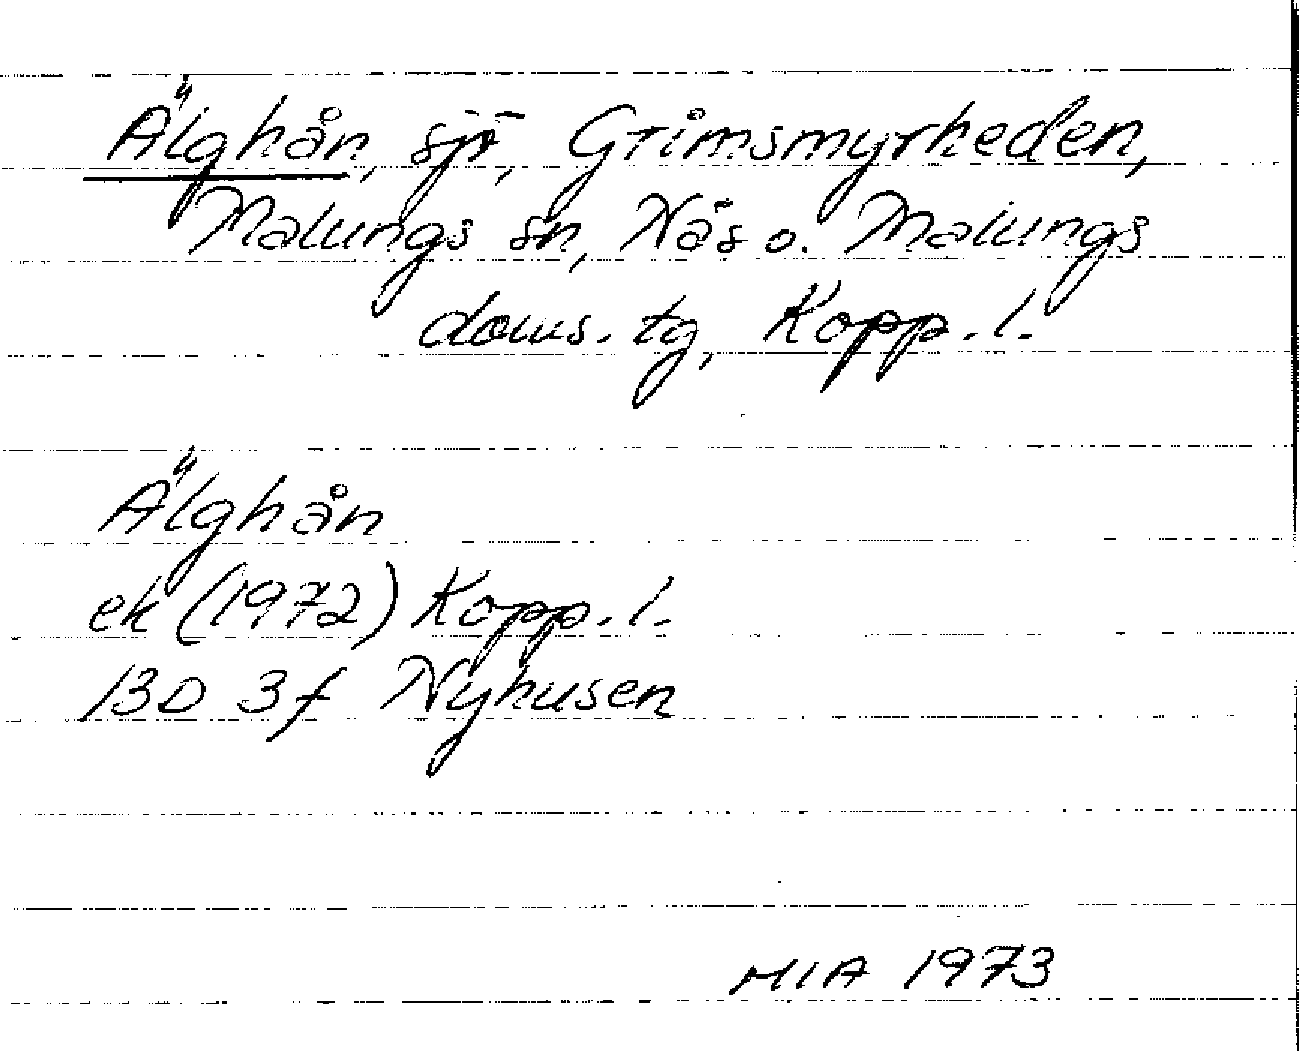 Älghån, sjö, Grimsmyrheden,
Malungs sn, Näs o. Malungs
doms. tg, Kopp. l.
Älghån
ek (1972) Kopp. l.
13D 3f Nyhusen
MIA 1973